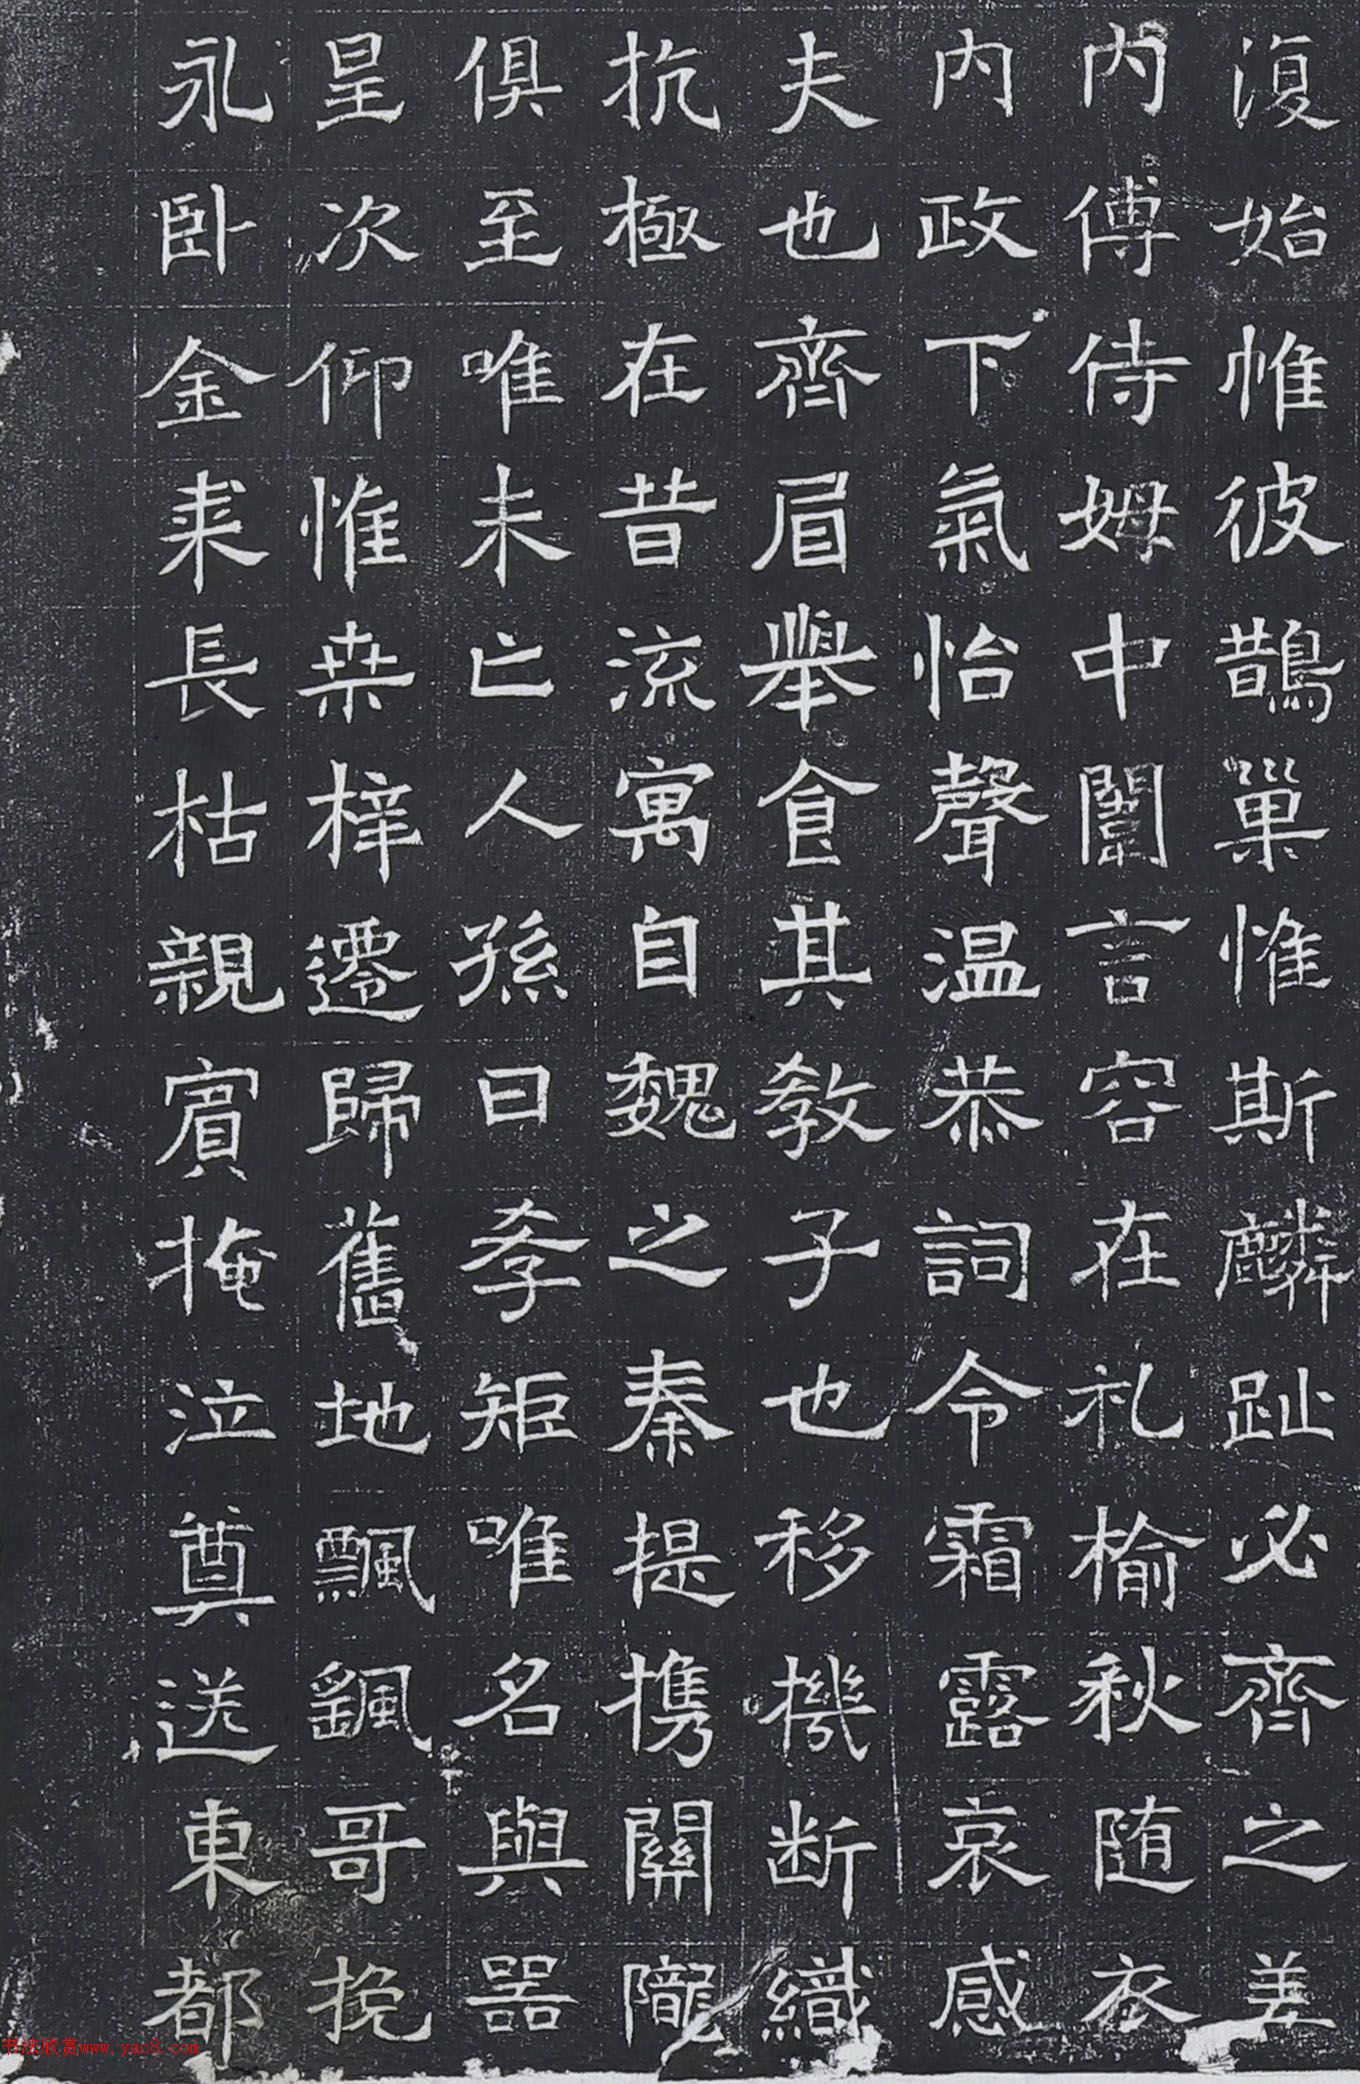 復始惟彼鵲巢惟斯麟趾必齊之美
内傅侍姆中闈言容在礼榆秋随衣
内政下氣怡聲温恭詞令霜露哀感
夫也齊眉舉食其教子也移機断織
抗極在昔流寓自魏之秦提携關隴
俱至唯未亡人孫曰孝矩唯名與器
呈次仰惟桒梓遷歸舊地飄颻哥挽
永卧金夫長枯親賓掩泣奠送東都
书法欣赏www.yac8.com